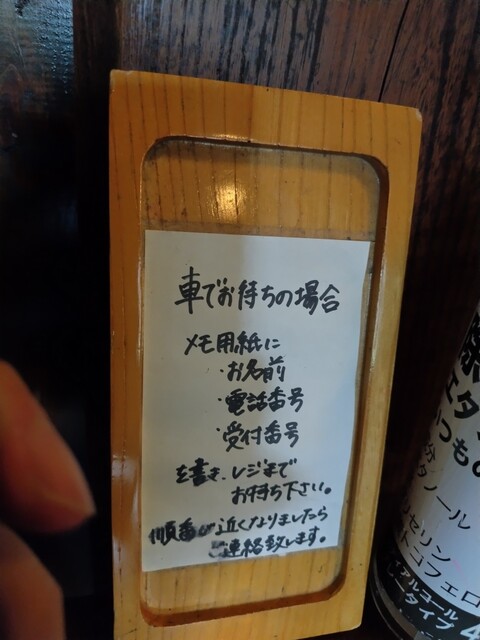 車でお待ちの場合
メモ用紙に
・お名前
・電話番号
・受付番号
を書き、レジまで
お持ち下さい。
順番が近くなりましたら
ご連絡致します。
エタ
いつもの
分
タノール
リセリン
トコフェロ
アルコール
タイプ